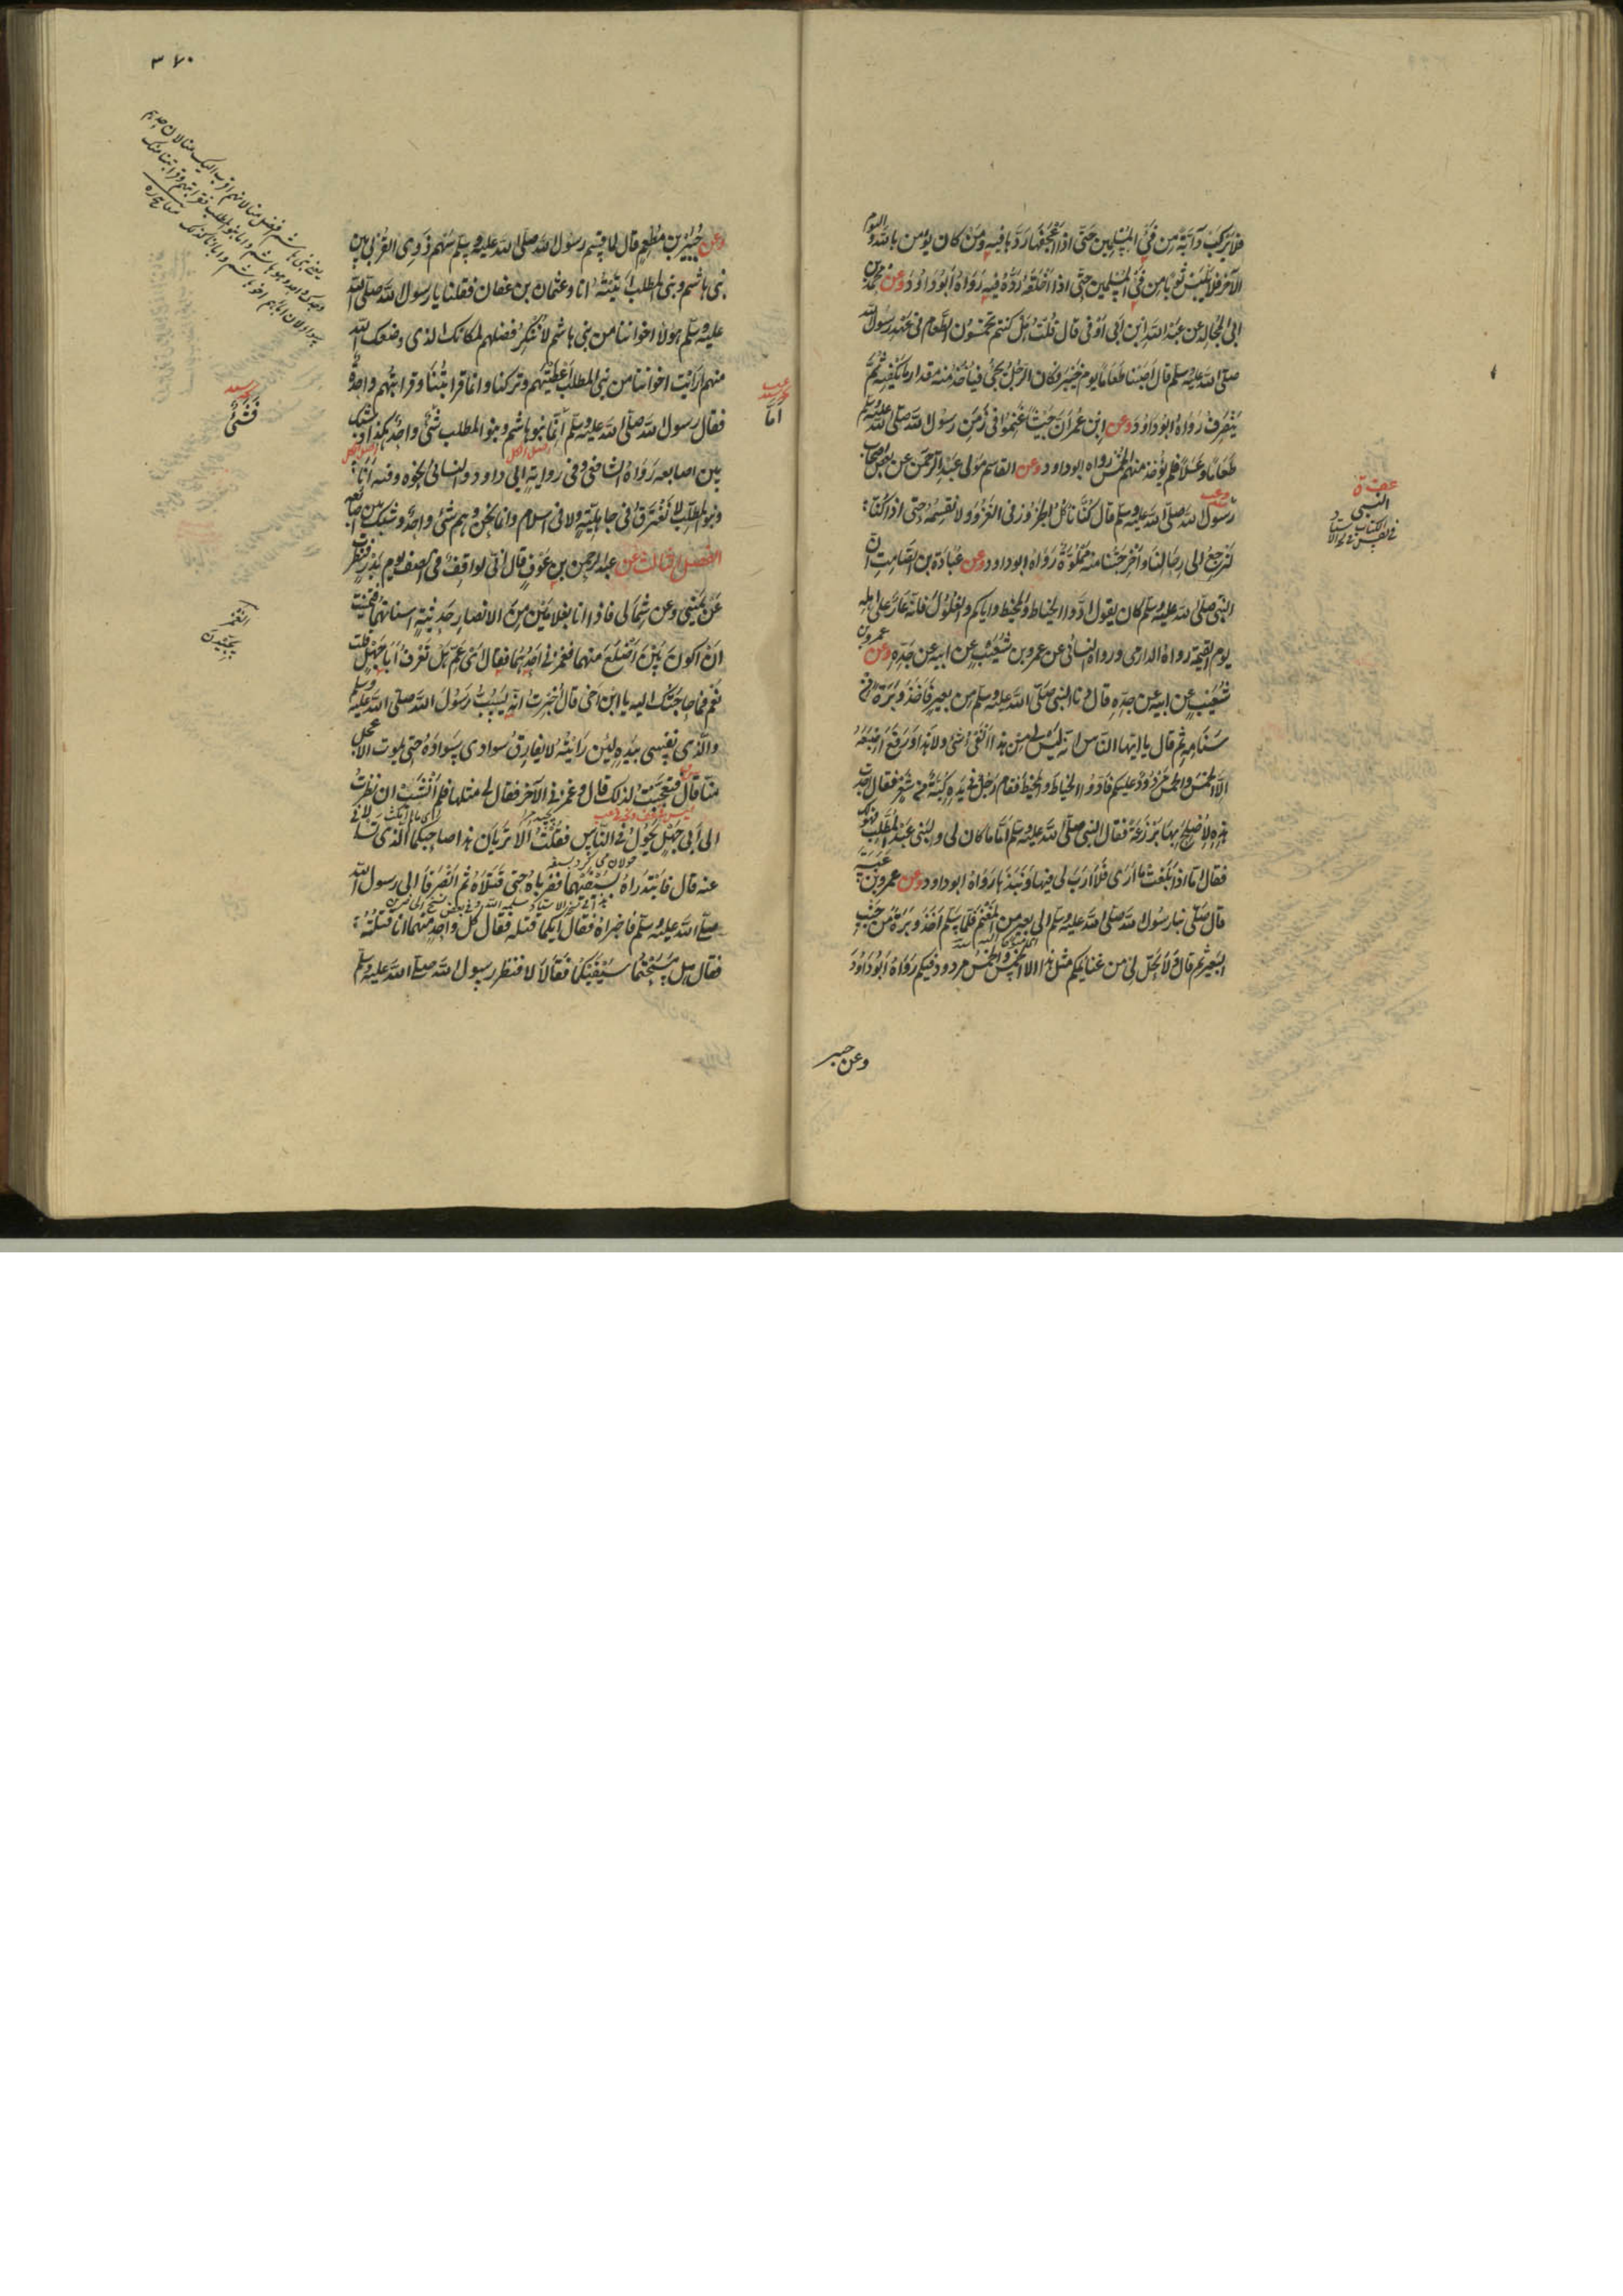 فلا يركب دابة من فئ المسلمين حتى اذا اعجفها ردها فيه ومن كان يؤمن بالله واليوم
الآخر فلا يلبس ثوبا من فئ المسلمين حتى اذا اخلقه رده فيه رواه ابو داود وعن محمد بن
ابى المجالد عن عبد الله ابن ابى اوفى قال قلت هل كنتم تخمسون الطعام فى عهد رسول الله
صلى الله عليه وسلم قال اصبنا طعاما يوم خيبر وكان الرجل يجئ فيأخذ منه مقدار ما يكفيه ثم
ينصرف رواه ابو داود وعن ابن عمر ان جيشا غنموا فى زمن رسول الله صلى الله عليه وسلم
طعاما وعسلا فلم يؤخذ منهم الخمس رواه ابو داود وعن القاسم مولى عبد الرحمن عن بعض اصحاب
رسول الله صلى الله عليه وسلم قال كنا نأكل الجزور فى الغزو ولا نقسمه حتى اذا كنا
لنرجع الى رحالنا واخرجتنا منه مملوة رواه ابو داود وعن عبادة بن الصامت ان
النبى صلى الله عليه وسلم كان يقول ادوا الخياط والمخيط واياكم والغلول فانه عار على اهله
يوم القيمة رواه الدارمى ورواه النسائى عن عمرو بن شعيب عن ابيه عن جده وعن عمرو بن
شعيب عن ابيه عن جده قال دنا النبى صلى الله عليه وسلم من بعير فاخذ وبرة من
سنامه ثم قال يا ايها الناس انه ليس لى من هذا الفئ شئ ولا هذا ورفع اصبعه
الا الخمس والخمس مردود عليكم فادوا الخياط والمخيط فقام رجل فى يده كبة من شعر فقال اخذت
هذه لاصلح بها بردعة فقال النبى صلى الله عليه وسلم اما ما كان لى ولبنى عبد المطلب فهو لك
فقال اما اذا بلغت ما ارى فلا ارب لى فيها ونبذها رواه ابو داود وعن عمرو بن عبسة
قال صلى بنا رسول الله صلى الله عليه وسلم الى بعير من المغنم فلما سلم اخذ وبرة من جنب
البعير ثم قال ولا يحل لى من غنائمكم مثل هذا الا الخمس والخمس مردود فيكم رواه ابو داود
وعن جبير
النبى
٣٧٠
وعن جبير بن مطعم قال لما قسم رسول الله صلى الله عليه وسلم سهم ذوى القربى بين
بنى هاشم وبنى المطلب اتيته انا وعثمان بن عفان فقلنا يا رسول الله صلى الله
عليه وسلم هؤلا اخواننا من بنى هاشم لا ننكر فضلهم لمكانك الذى وضعك الله
منهم ارأيت اخواننا من بنى المطلب اعطيتهم وتركتنا وانما قرابتنا وقرابتهم واحدة
فقال رسول الله صلى الله عليه وسلم انما بنو هاشم وبنو المطلب شئ واحد هكذا وشبك
بين اصابعه رواه الشافعى وفى رواية ابى داود والنسائى نحوه وفيه انا
وبنو المطلب لا نفترق فى جاهلية ولا فى اسلام وانما نحن وهم شئ واحد وشبك بين اصابعه
الفصل الثالث عن عبد الرحمن بن عوف قال انى لواقف فى الصف يوم بدر فنظرت
عن يمينى وعن شمالى فاذا انا بغلامين من الانصار حديثة اسنانهما فتمنيت
ان اكون بين اضلع منهما فغمزنى احدهما فقال اى عم هل تعرف ابا جهل قلت
نعم فما حاجتك اليه يا ابن اخى قال اخبرت انه يسب رسول الله صلى الله عليه وسلم
والذى نفسى بيده لئن رايته لا يفارق سوادى سواده حتى يموت الاعجل
منا قال فتعجبت لذلك قال وغمزنى الآخر فقال لى مثلها فلم انشب ان نظرت
الى ابى جهل يجول فى الناس فقلت الا تريان هذا صاحبكما الذى تسألانى
عنه قال فابتدراه بسيفيهما فضرباه حتى قتلاه ثم انصرفا الى رسول الله
صلى الله عليه وسلم فاخبراه فقال ايكما قتله فقال كل واحد منهما انا قتلته
فقال هل مسحتما سيفيكما فقالا لا فنظر رسول الله صلى الله عليه وسلم
اما